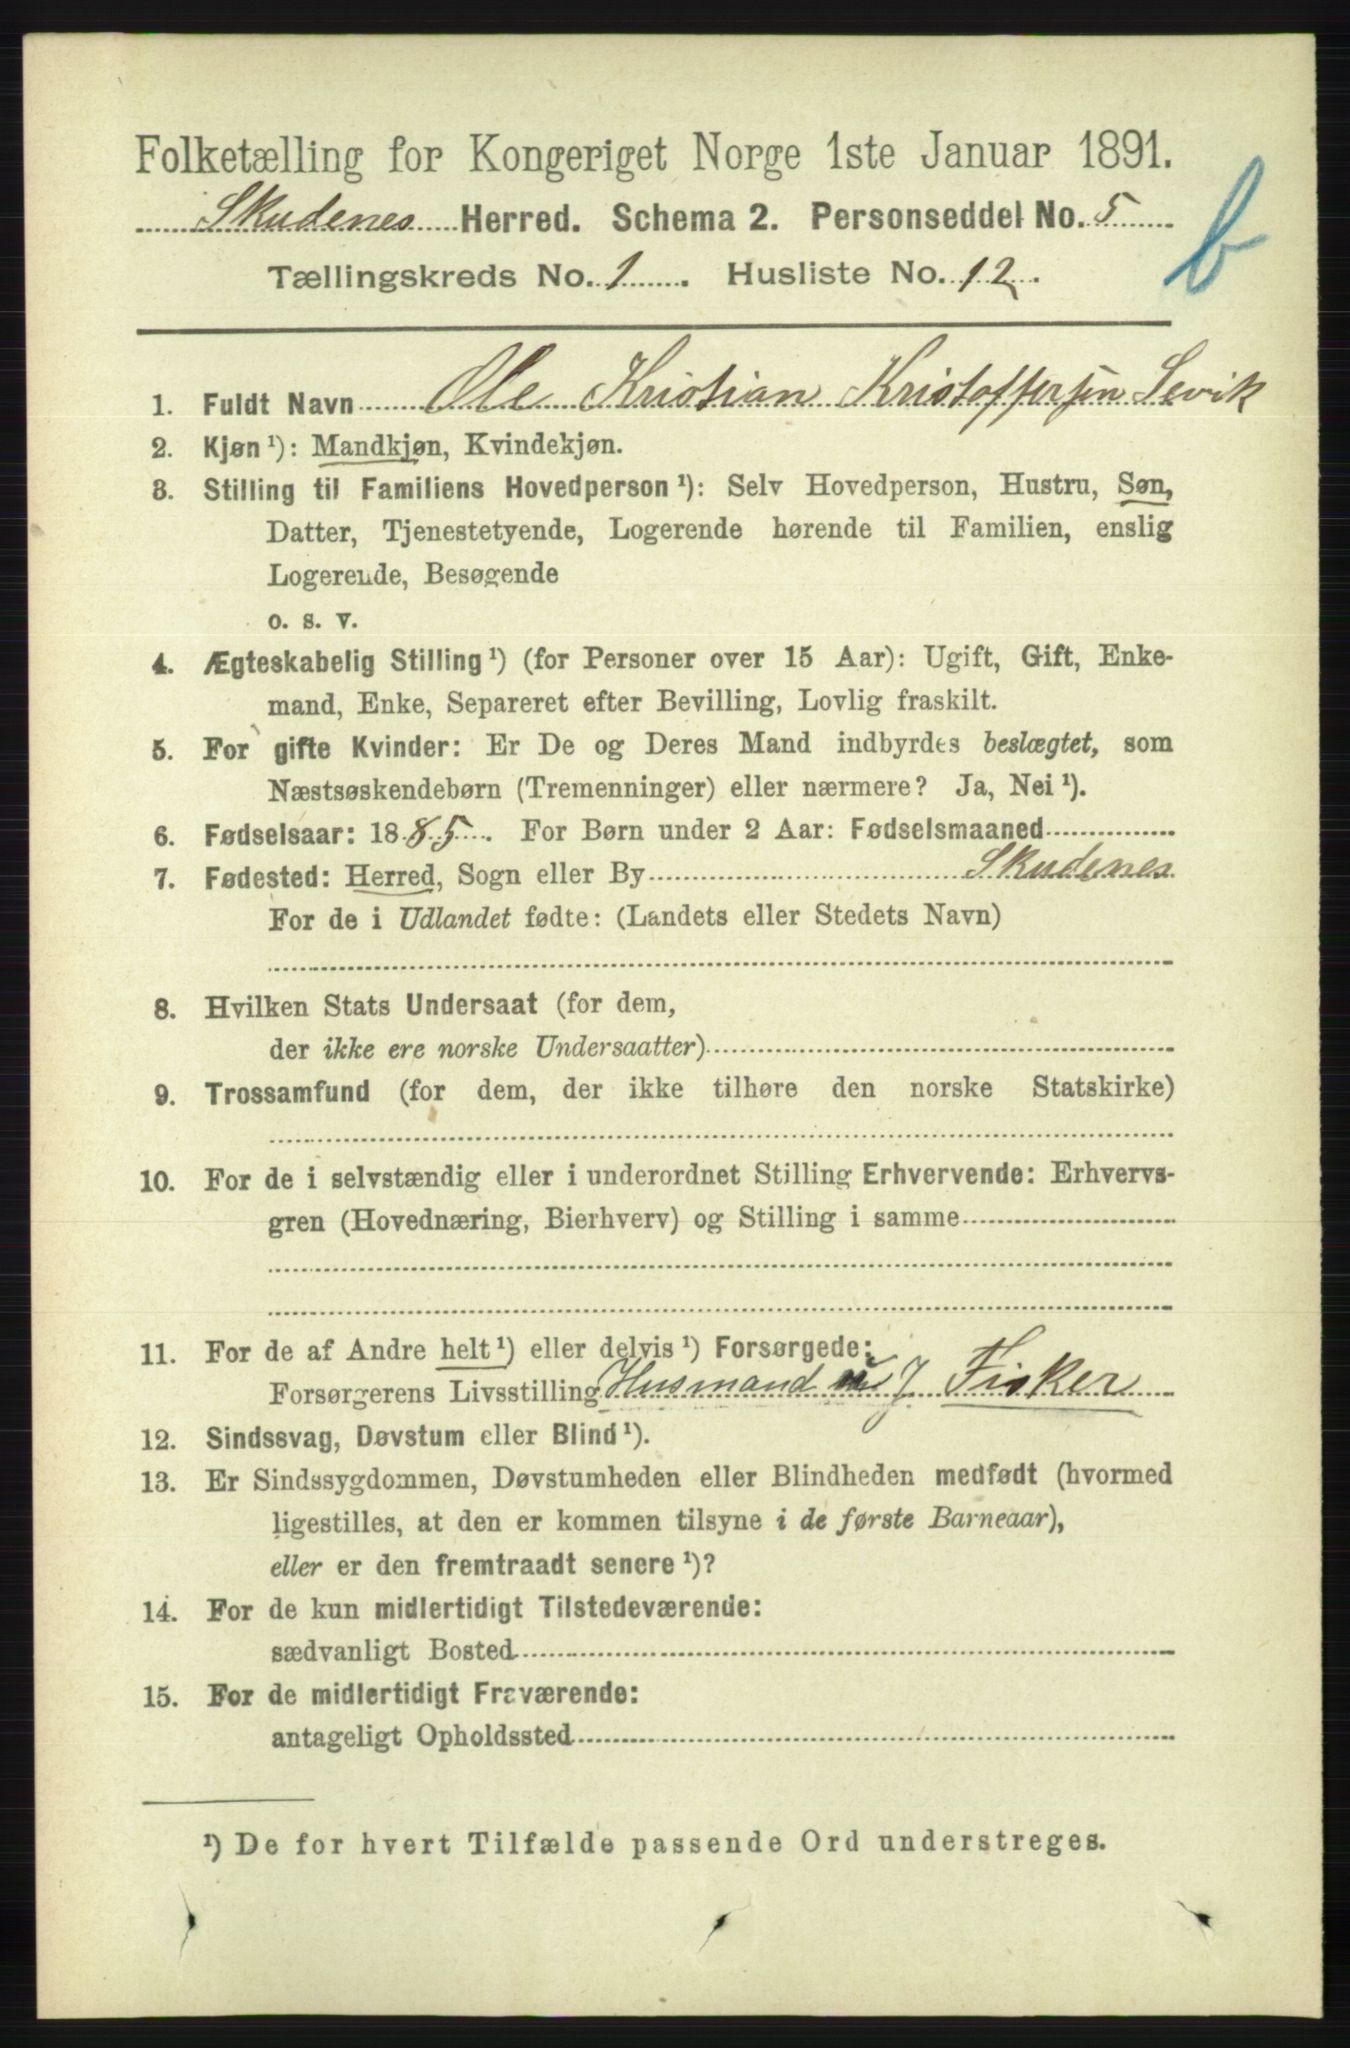 Folketælling for Kongeriget Norge 1ste Januar 1891.
Skudenes Herred. Schema 2. Personseddel No. 5
Tællingskreds No. 1. Husliste No. 12.
b
1. Fuldt Navn Ole Kristian Kristoffersen Sevik
2. Kjøn ¹): Mandkjøn, Kvindekjøn.
3. Stilling til Familiens Hovedperson ¹): Selv Hovedperson, Hustru, Søn,
Datter, Tjenestetyende, Logerende hørende til Familien, enslig
Logerende, Besøgende
o. s. v.
4. Ægteskabelig Stilling ¹) (for Personer over 15 Aar): Ugift, Gift, Enke-
mand, Enke, Separeret efter Bevilling, Lovlig fraskilt.
5. For gifte Kvinder: Er De og Deres Mand indbyrdes beslægtet, som
Næstsøskendebørn (Tremenninger) eller nærmere? Ja, Nei ¹).
6. Fødselsaar: 1885. For Børn under 2 Aar: Fødselsmaaned
7. Fødested: Herred, Sogn eller By Skudenes
For de i Udlandet fødte: (Landets eller Stedets Navn)
8. Hvilken Stats Undersaat (for dem,
der ikke ere norske Undersaatter)
9. Trossamfund (for dem, der ikke tilhøre den norske Statskirke)
10. For de i selvstændig eller i underordnet Stilling Erhvervende: Erhvervs-
gren (Hovednæring, Bierhverv) og Stilling i samme
11. For de af Andre helt ¹) eller delvis ¹) Forsørgede:
Forsørgerens Livsstilling Husmand J Fisker
12. Sindssvag, Døvstum eller Blind ¹).
13. Er Sindssygdommen, Døvstumheden eller Blindheden medfødt (hvormed
ligestilles, at den er kommen tilsyne i de første Barneaar),
eller er den fremtraadt senere ¹)?
14. For de kun midlertidigt Tilstedeværende:
sædvanligt Bosted
15. For de midlertidigt Fraværende:
antageligt Opholdssted
¹) De for hvert Tilfælde passende Ord understreges.